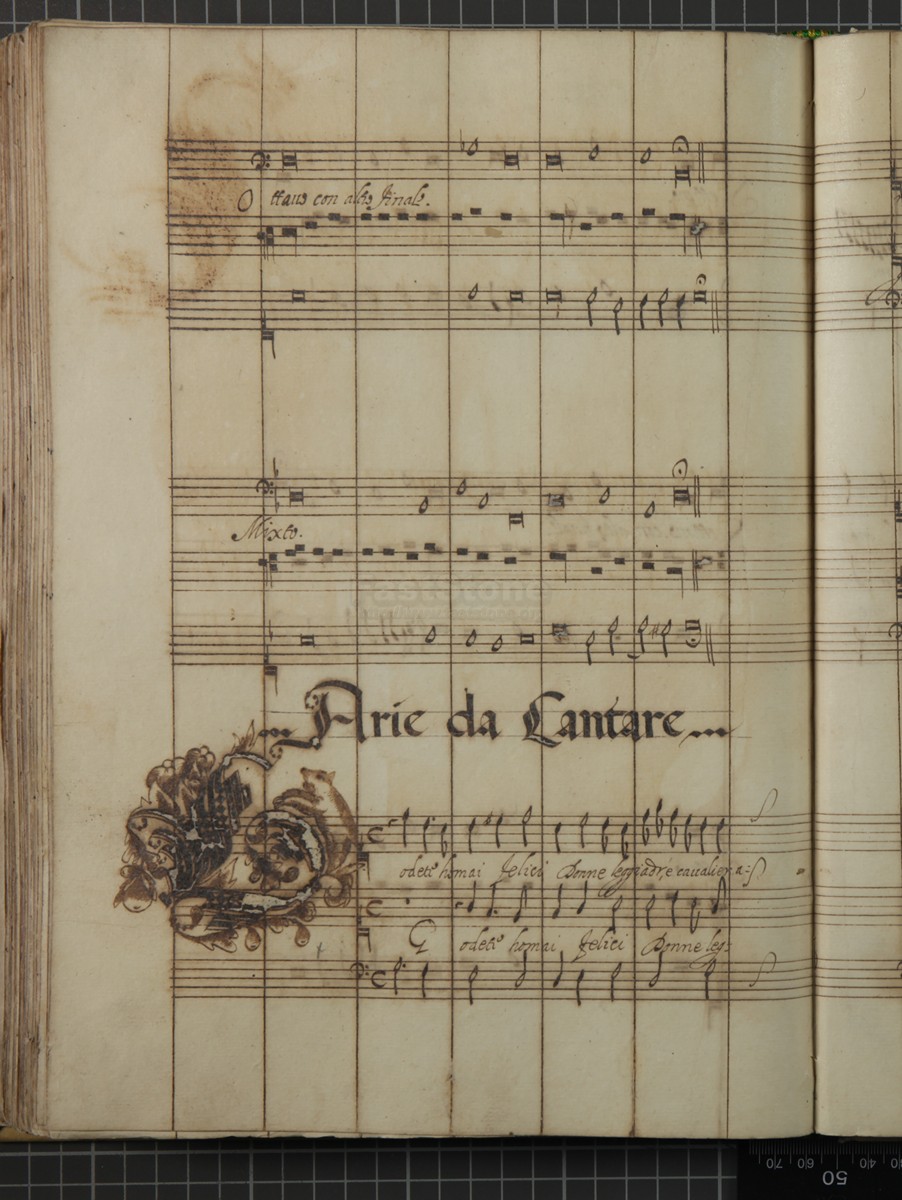 Ottauo con alto Finale.
Mixto.
Arie da Cantare
odete homai felici Donne leggiadre caualier a-
G odete homai felici Donne leg:
70 60 50 40